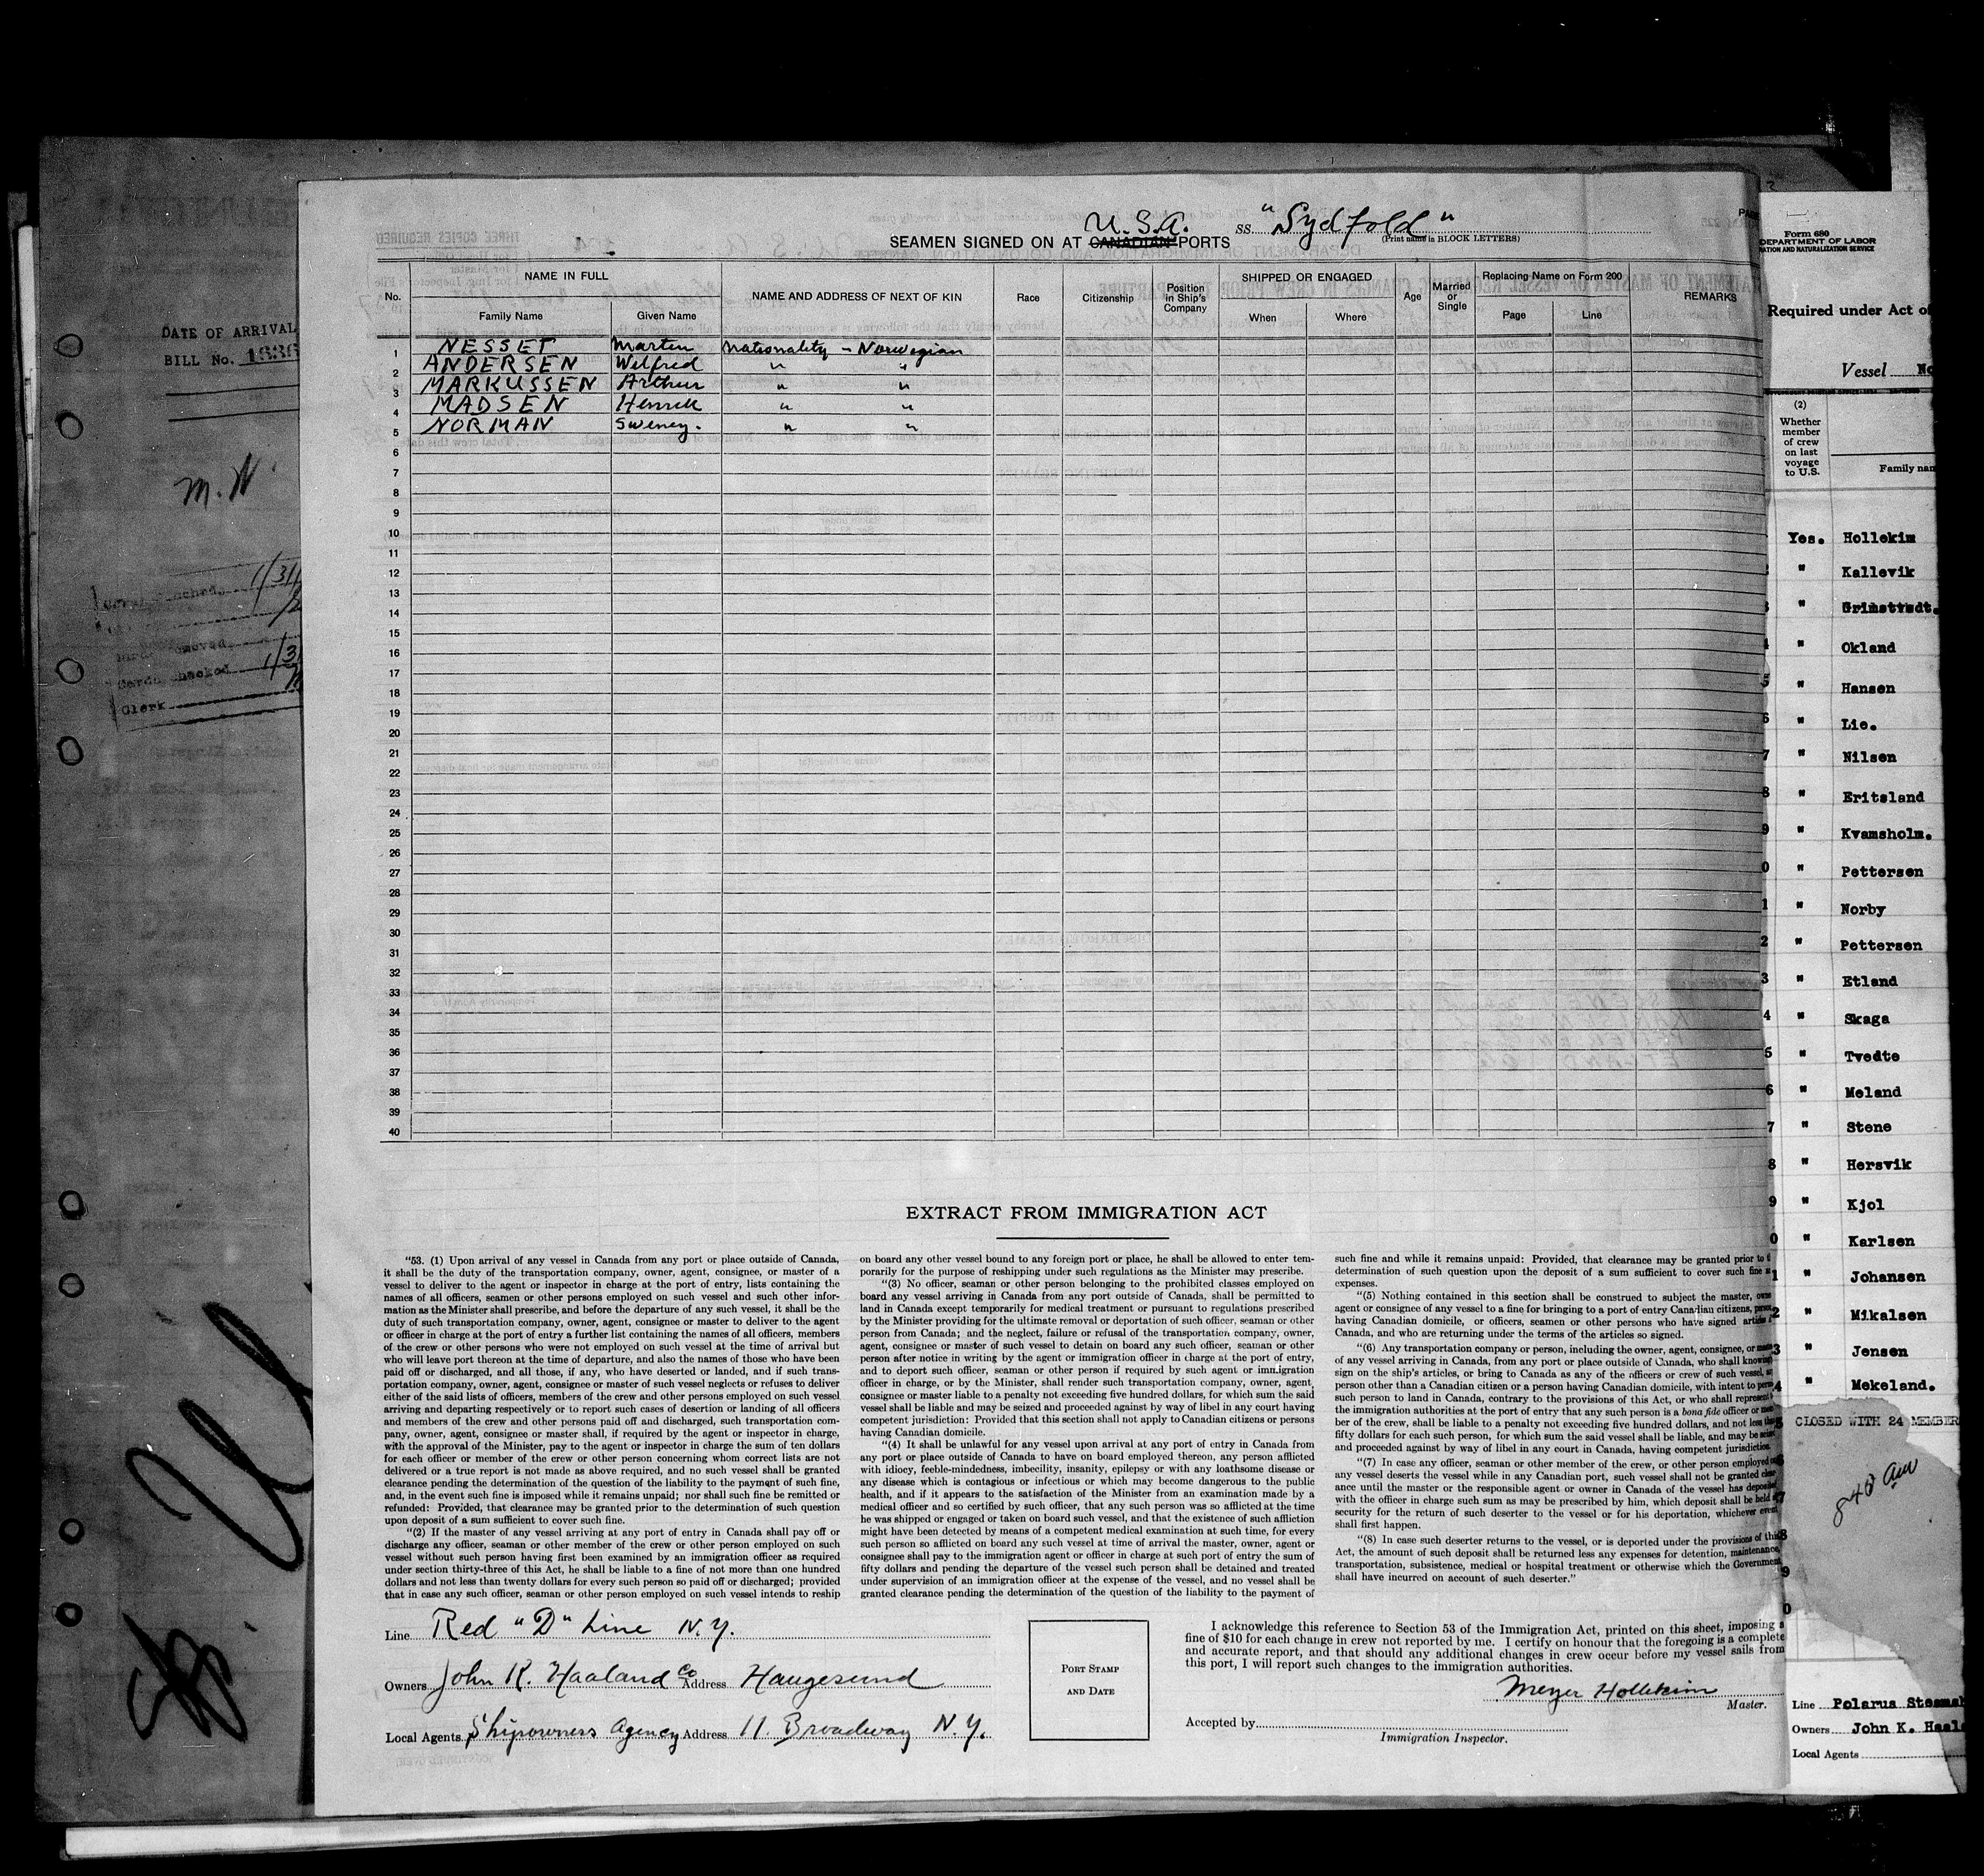 U.S.A. SS. "Sydfold"
SEAMEN SIGNED ON AT CANADIAN PORTS (Print name in BLOCK LETTERS)
No. NAME IN FULL NAME AND ADDRESS OF NEXT OF KIN Race Citizenship Position in Ship's Company SHIPPED OR ENGAGED Age Married or Single Replacing Name on Form 200 REMARKS
Family Name Given Name When Where Page Line
1 NESSET Martin Nationality - Norwegian
2 ANDERSEN Wilfred " "
3 MARKUSSEN Arthur " "
4 MADSEN Henrik " "
5 NORMAN Sweney. " "
6
7
8
9
10
11
12
13
14
15
16
17
18
19
20
21
22
23
24
25
26
27
28
29
30
31
32
33
34
35
36
37
38
39
40
EXTRACT FROM IMMIGRATION ACT
"53. (1) Upon arrival of any vessel in Canada from any port or place outside of Canada,
it shall be the duty of the transportation company, owner, agent, consignee, or master of a
vessel to deliver to the agent or inspector in charge at the port of entry, lists containing the
names of all officers, seamen or other persons employed on such vessel and such other infor-
mation as the Minister shall prescribe, and before the departure of any such vessel, it shall be the
duty of such transportation company, owner, agent, consignee or master to deliver to the agent
or officer in charge at the port of entry a further list containing the names of all officers, members
of the crew or other persons who were not employed on such vessel at the time of arrival but
who will leave port thereon at the time of departure, and also the names of those who have been
paid off or discharged, and all those, if any, who have deserted or landed, and if such trans-
portation company, owner, agent, consignee or master of such vessel neglects or refuses to deliver
either of the said lists of officers, members of the crew and other persons employed on such vessel
arriving and departing respectively or to report such cases of desertion or landing of all officers
and members of the crew and other persons paid off and discharged, such transportation com-
pany, owner, agent, consignee or master shall, if required by the agent or inspector in charge,
with the approval of the Minister, pay to the agent or inspector in charge the sum of ten dollars
for each officer or member of the crew or other person concerning whom correct lists are not
delivered or a true report is not made as above required, and no such vessel shall be granted
clearance pending the determination of the question of the liability to the payment of such fine,
and, in the event such fine is imposed while it remains unpaid; nor shall such fine be remitted or
refunded: Provided, that clearance may be granted prior to the determination of such question
upon deposit of a sum sufficient to cover such fine.
"(2) If the master of any vessel arriving at any port of entry in Canada shall pay off or
discharge any officer, seaman or other member of the crew or other person employed on such
vessel without such person having first been examined by an immigration officer as required
under section thirty-three of this Act, he shall be liable to a fine of not more than one hundred
dollars and not less than twenty dollars for every such person so paid off or discharged; provided
that in case any officer, seaman or other person employed on such vessel intends to reship
on board any other vessel bound to any foreign port or place, he shall be allowed to enter tem-
porarily for the purpose of reshipping under such regulations as the Minister may prescribe.
"(3) No officer, seaman or other person belonging to the prohibited classes employed on
board any vessel arriving in Canada from any port outside of Canada, shall be permitted to
land in Canada except temporarily for medical treatment or pursuant to regulations prescribed
by the Minister providing for the ultimate removal or deportation of such officer, seaman or other
person from Canada; and the neglect, failure or refusal of the transportation company, owner,
agent, consignee or master of such vessel to detain on board any such officer, seaman or other
person after notice in writing by the agent or immigration officer in charge at the port of entry,
and to deport such officer, seaman or other person if required by such agent or immigration
officer in charge, or by the Minister, shall render such transportation company, owner, agent
consignee or master liable to a penalty not exceeding five hundred dollars, for which sum the said
vessel shall be liable and may be seized and proceeded against by way of libel in any court having
competent jurisdiction: Provided that this section shall not apply to Canadian citizens or persons
having Canadian domicile.
"(4) It shall be unlawful for any vessel upon arrival at any port of entry in Canada from
any port or place outside of Canada to have on board employed thereon, any person afflicted
with idiocy, feeble-mindedness, imbecility, insanity, epilepsy or with any loathsome disease or
any disease which is contagious or infectious or which may become dangerous to the public
health, and if it appears to the satisfaction of the Minister from an examination made by a
medical officer and so certified by such officer, that any such person was so afflicted at the time
he was shipped or engaged or taken on board such vessel, and that the existence of such affliction
might have been detected by means of a competent medical examination at such time, for every
such person so afflicted on board any such vessel at time of arrival the master, owner, agent or
consignee shall pay to the immigration agent or officer in charge at such port of entry the sum of
fifty dollars and pending the departure of the vessel such person shall be detained and treated
under supervision of an immigration officer at the expense of the vessel, and no vessel shall be
granted clearance pending the determination of the question of the liability to the payment of
such fine and while it remains unpaid: Provided, that clearance may be granted prior to
determination of such question upon the deposit of a sum sufficient to cover such fine
expenses.
"(5) Nothing contained in this section shall be construed to subject the master,
agent or consignee of any vessel to a fine for bringing to a port of entry Canadian citizens,
having Canadian domicile, or officers, seamen or other persons who have signed articles
Canada, and who are returning under the terms of the articles so signed.
"(6) Any transportation company or person, including the owner, agent, consignee, or
of any vessel arriving in Canada, from any port or place outside of Canada, who shall
sign on the ship's articles, or bring to Canada as any of the officers or crew of such vessel,
person other than a Canadian citizen or a person having Canadian domicile, with intent to
such person to land in Canada, contrary to the provisions of this Act, or who shall represent
the immigration authorities at the port of entry that any such person is a bona fide officer or
ber of the crew, shall be liable to a penalty not exceeding five hundred dollars, and not less
fifty dollars for each such person, for which sum the said vessel shall be liable, and may be
and proceeded against by way of libel in any court in Canada, having competent jurisdiction.
"(7) In case any officer, seaman or other member of the crew, or other person employed
any vessel deserts the vessel while in any Canadian port, such vessel shall not be granted
ance until the master or the responsible agent or owner in Canada of the vessel has
with the officer in charge such sum as may be prescribed by him, which deposit shall be held
security for the return of such deserter to the vessel or for his deportation, whichever event
shall first happen.
"(8) In case such deserter returns to the vessel, or is deported under the provisions of this
Act, the amount of such deposit shall be returned less any expenses for detention, maintenance,
transportation, subsistence, medical or hospital treatment or otherwise which the Government
shall have incurred on account of such deserter."
Line Red "D" Line N.Y.
Owners John K. Haaland Co Address Haugesund
Local Agents Shipowners Agency Address 11. Broadway N.Y.
PORT STAMP
AND DATE
I acknowledge this reference to Section 53 of the Immigration Act, printed on this sheet, imposing a
fine of $10 for each change in crew not reported by me. I certify on honour that the foregoing is a complete
and accurate report, and that should any additional changes in crew occur before my vessel sails from
this port, I will report such changes to the immigration authorities.
Meyer Hollekim
Master.
Accepted by
Immigration Inspector.
DATE OF ARRIVAL
BILL No. 1636
M.N.
Clerk
Form 680
DEPARTMENT OF LABOR
Required under Act of
Vessel No
(2)
Whether
member
of crew
on last
voyage
to U.S.
Family
Yes. Hollekim
" Kallevik
" Grimstvedt.
" Okland
5 " Hansen
6 " Lie.
7 " Nilsen
8 " Eritsland
9 " Kvamsholm.
0 " Pettersen
1 " Norby
2 " Pettersen
3 " Etland
4 " Skaga
5 " Tvedte
6 " Meland
7 " Stene
8 " Hersvik
9 " Kjol
0 " Karlsen
1 " Johansen
2 " Mikalsen
3 " Jensen
4 " Mekeland.
CLOSED WITH 24 MEMBER
840 am
Line Polarus
Owners John K.
Local Agents